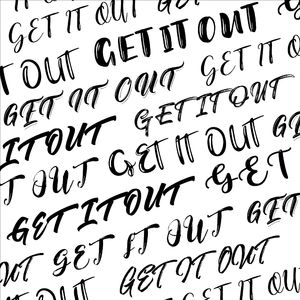 IT OUT GET IT OUT
GET IT OUT GET
T OUT GET IT OUT G
GET IT OUT GET IT
GET IT OUT GET IT OUT
IT OUT GET IT OUT GET
T OUT GET IT OUT GET
GET IT OUT GET
OUT GET IT OUT GET IT
GET IT OUT
GET IT OUT